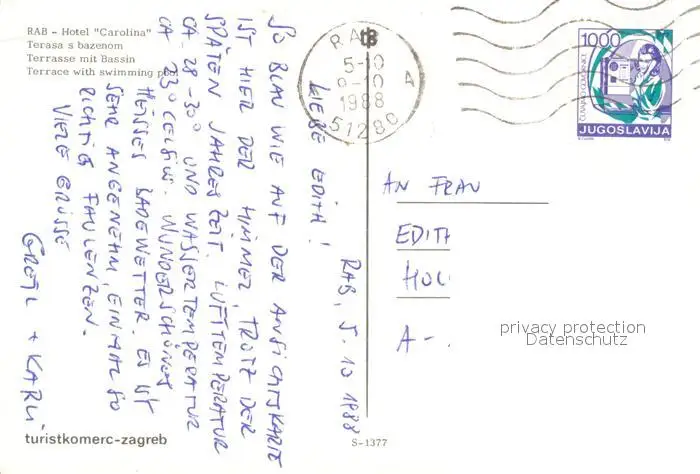 RAB - Hotel "Carolina"
Terasa s bazenom
Terrasse mit Bassin
Terrace with swimming pool
RAB, 5. 10 1988
LIEBE EDITH!
SO BLAU WIE AUF DER ANSICHTSKARTE
IST HIER DER HIMMEL, TROTZ DER
SPÄTEN JAHRESZEIT. LUFTTEMPERATUR
CA. 28-30° UND WASSERTEMPERATUR
CA 23° CELSIUS. WUNDERSCHÖNES
HEISSES BADEWETTER. ES IST
SEHR ANGENEHM, EINMAL SO
RICHTIG FAULENZEN.
VIELE GRÜSSE
GRETL + KARLI
turistkomerc-zagreb
S-1377
RAB
5-10
1988
51280
A
1000
ČUVAJMO GOVORNICE
JUGOSLAVIJA
AN FRAU
EDITH
A-
privacy protection
Datenschutz